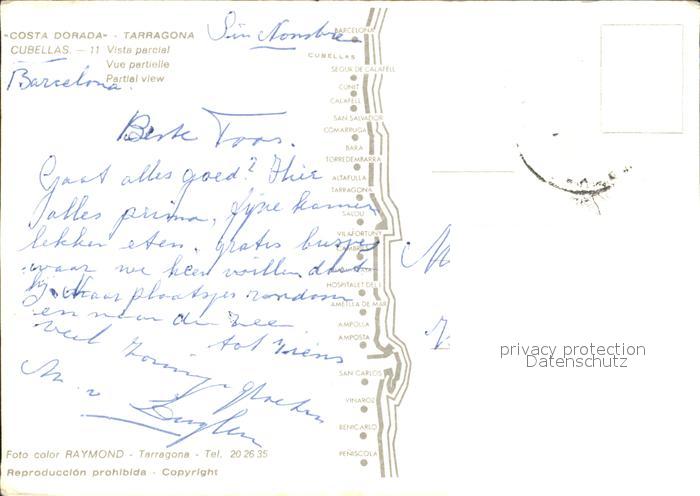 "COSTA DORADA" - TARRAGONA
CUBELLAS. — 11 Vista parcial
Vue partielle
Partial view
Sin Nombre
Barcelona.
Beste Toos.
Gaat alles goed? Hier
alles prima, fijne kamer
lekker eten, gratis busje
waar we heen willen
naar plaatsjes rondom
en naar de zee
veel zonnige groeten
tot ziens
M. v
BARCELONA
CUBELLAS
SEGUR DE CALAFELL
CUNIT
CALAFELL
SAN SALVADOR
COMARRUGA
BARA
TORREDEMBARRA
ALTAFULLA
TARRAGONA
SALOU
VILAFORTUNY
CAMBRILS
HOSPITALET DEL I
AMETLLA DE MAR
AMPOLLA
AMPOSTA
SAN CARLOS
VINAROZ
BENICARLO
PEÑISCOLA
M
privacy protection
Datenschutz
Foto color RAYMOND - Tarragona - Tel. 20 26 35
Reproducción prohibida - Copyright